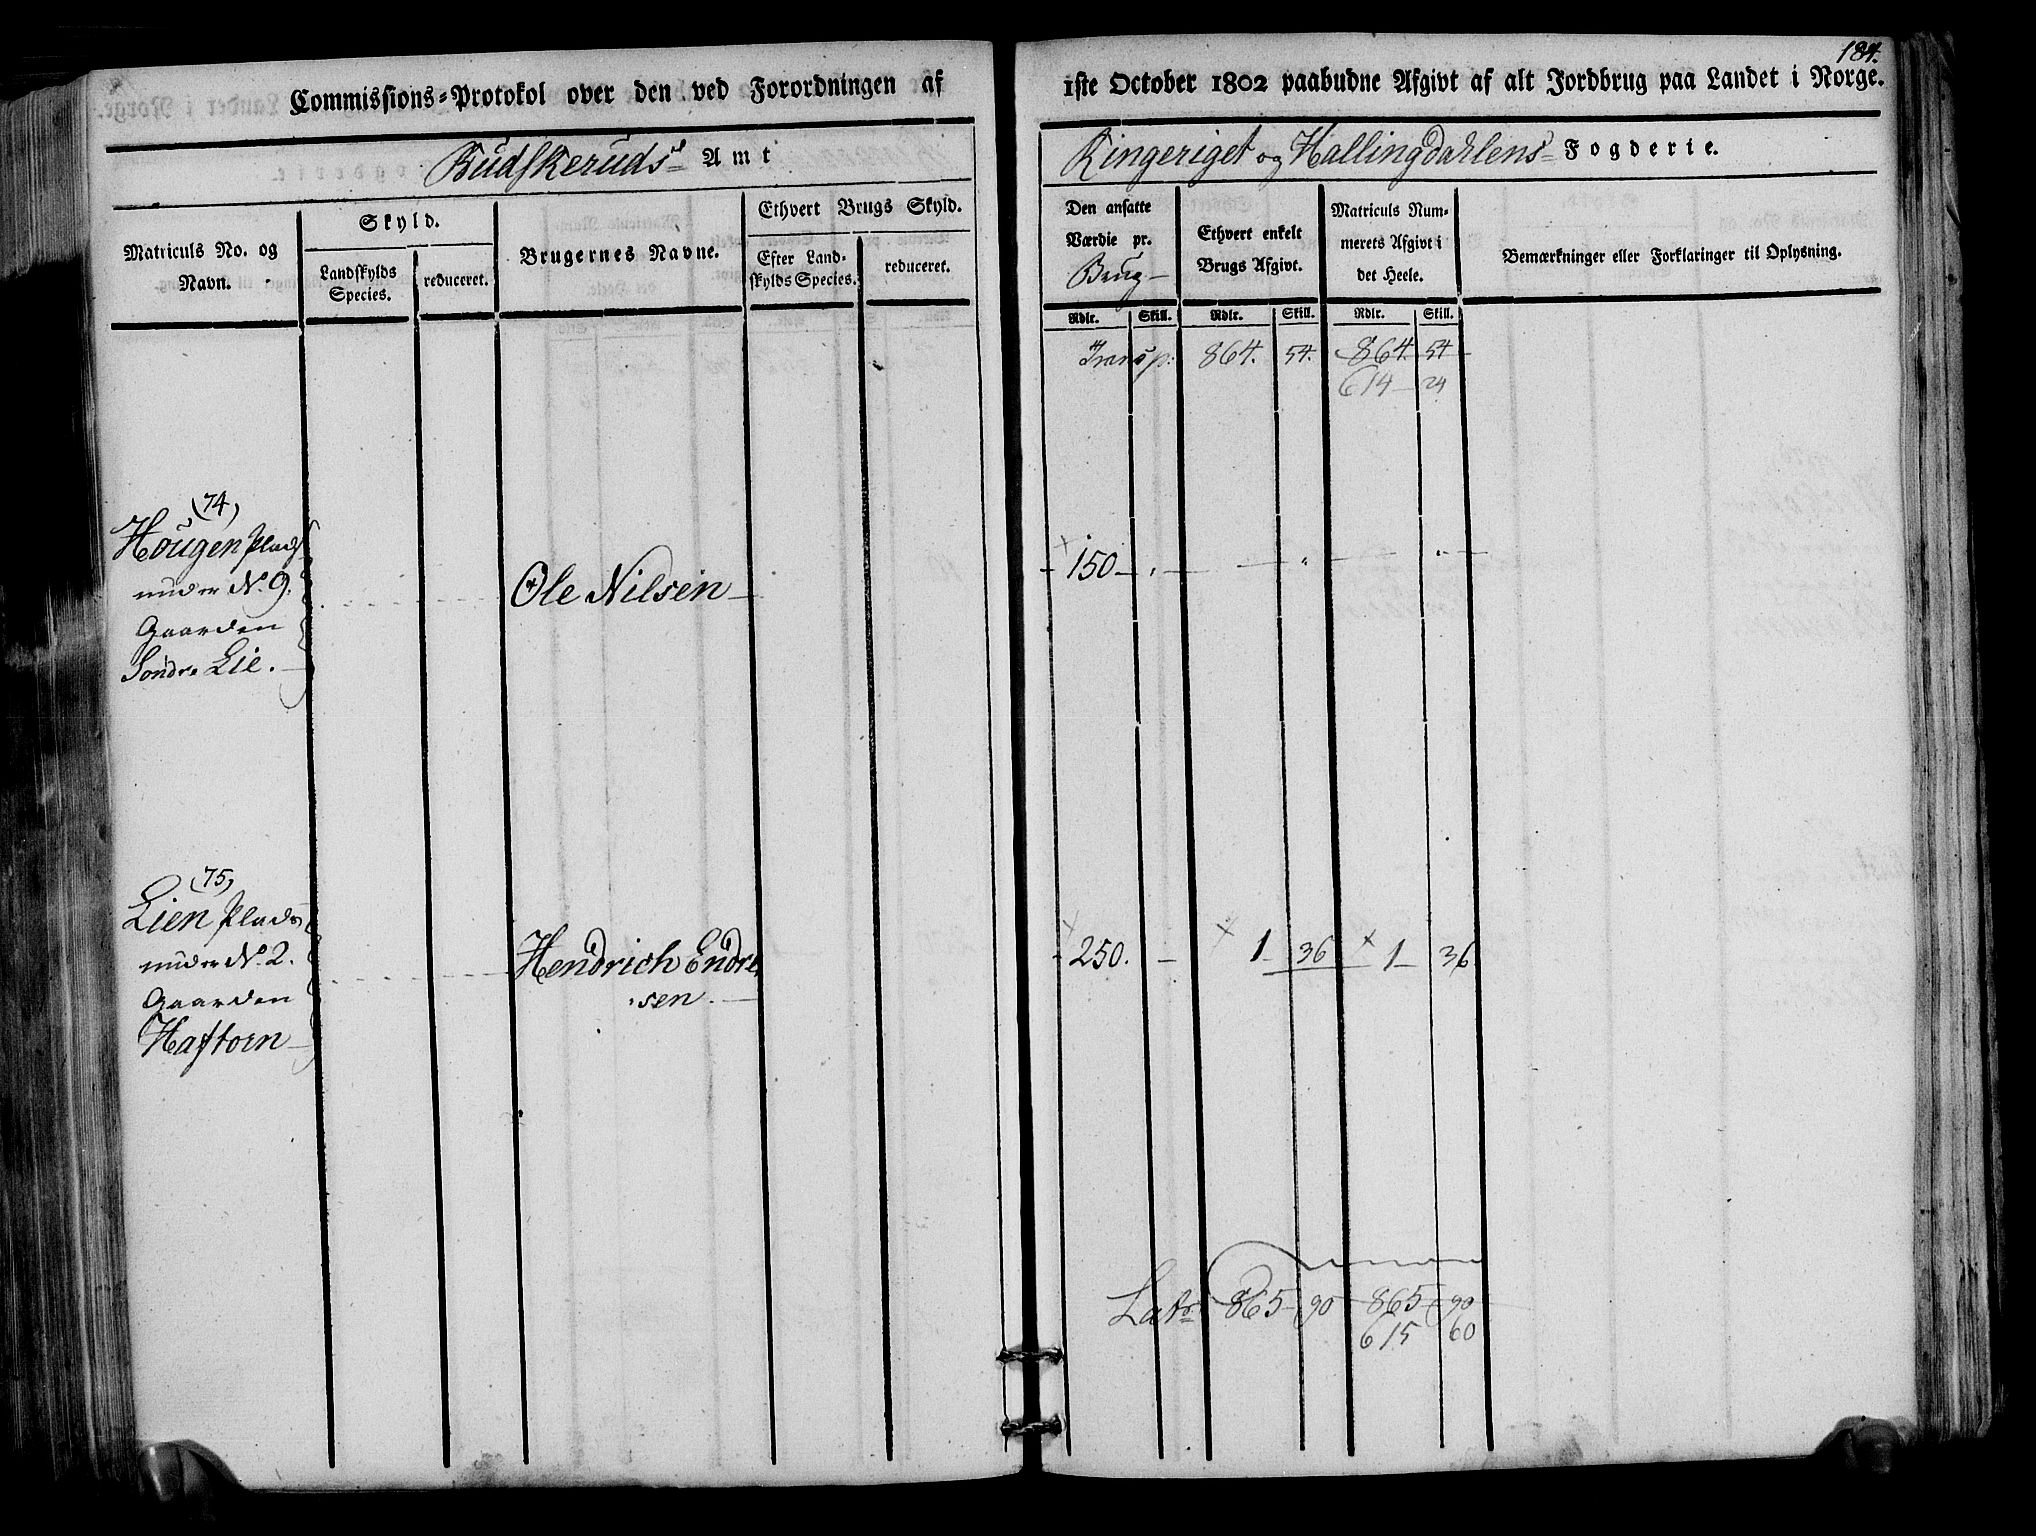 184.
Commissions-Protokol over den ved Forordningen af 1ste October 1802 paabudne Afgivt af alt Jordbrug paa Landet i Norge.
Budskeruds Amt
Ringeriget og Hallingdahlens Fogderie.
Matriculs No. og Navn.
Skyld.
Landskylds Species.
reduceret.
Brugernes Navne.
Ethvert Brugs Skyld.
Efter Landskylds Species.
reduceret.
Den ansatte Værdie pr. Brug
Ethvert enkelt Brugs Afgivt.
Matriculs Nummerets Afgivt i det Heele.
Bemærkninger eller Forklaringer til Oplysning.
Rdlr. Skill. Rdlr. Skill. Rdlr. Skill.
Transp: 864. 54. 864. 54
614 24
74
Hougen Plads
under No. 9.
Gaarden
Søndre Lie.
Ole Nilsen
150
75
Lien Plads
under No. 2.
Gaarden
Haftorn
Hendrich Endre
sen.
250. 1 36 1 36
Latr 865 90 865 90
615 60